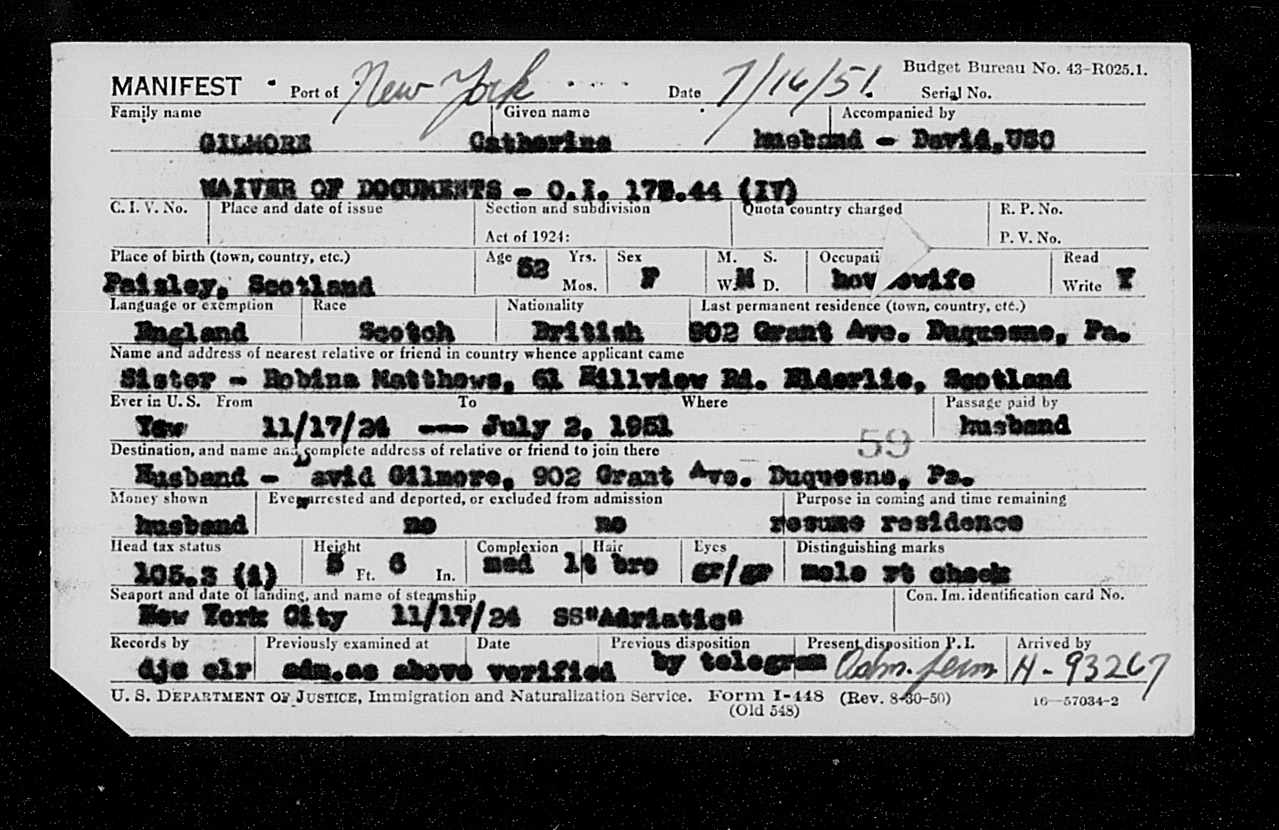 MANIFEST Port of New York Date 7/16/51. Budget Bureau No. 43-R025.1.
Serial No.
Family name Given name Accompanied by
GILMORE Catherine husband - David, USC
WAIVER OF DOCUMENTS - O.I. 175.44 (IV)
C. I. V. No. Place and date of issue Section and subdivision Quota country charged R. P. No.
Act of 1924: P. V. No.
Place of birth (town, country, etc.) Age 52 Yrs. Sex M. S. Occupati Read
Paisley, Scotland Mos. F W. M D. housewife Write Y
Language or exemption Race Nationality Last permanent residence (town, country, etc.)
England Scotch British 902 Grant Ave. Duquesne, Pa.
Name and address of nearest relative or friend in country whence applicant came
Sister - Robina Matthews, 61 Hillview Rd. Elderlie, Scotland
Ever in U. S. From To Where Passage paid by
Yes 11/17/24 --- July 2, 1951 husband
59
Destination, and name and complete address of relative or friend to join there
Husband - David Gilmore, 902 Grant Ave. Duquesne, Pa.
Money shown Ever arrested and deported, or excluded from admission Purpose in coming and time remaining
husband no no resume residence
Head tax status Height Complexion Hair Eyes Distinguishing marks
105.3 (1) 5 Ft. 6 In. med lt bro gr/gr mole rt cheek
Seaport and date of landing, and name of steamship Con. Im. identification card No.
New York City 11/17/24 SS"Adriatic"
Records by Previously examined at Date Previous disposition Present disposition P. I. Arrived by
djs clr adm.as above verified by telegram Adm. perm H-93267
U. S. DEPARTMENT OF JUSTICE, Immigration and Naturalization Service. Form I-448 (Rev. 8-30-50) 16—57034-2
(Old 548)